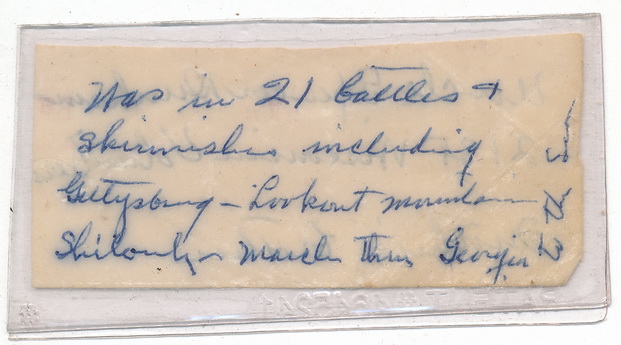 Was in 21 battles &
skirmishes including
Gettysburg - Lookout mountain
Shilouh - March thru Georgia